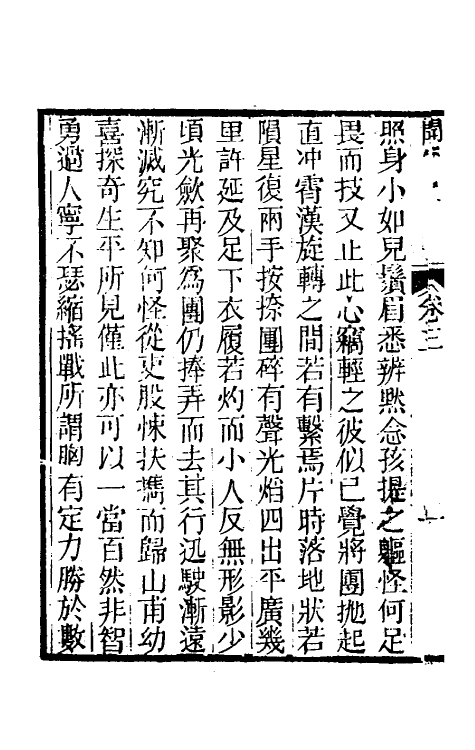 聞
卷三
照身小如兒鬚眉悉辨黙念孩提之軀怪何足
畏而技又止此心竊輕之彼似已覺將團拋起
直冲霄漢旋轉之間若有繫焉片時落地狀若
隕星復兩手按捺團碎有聲光焰四出平廣幾
里許延及足下衣履若灼而小人反無形影少
頃光斂再聚爲團仍捧弄而去其行迅駛漸遠
漸滅究不知何怪從吏股慄扶攜而歸山甫幼
喜探奇生平所見僅此亦可以一當百然非智
勇過人寧不瑟縮搖戰所謂胸有定力勝於數